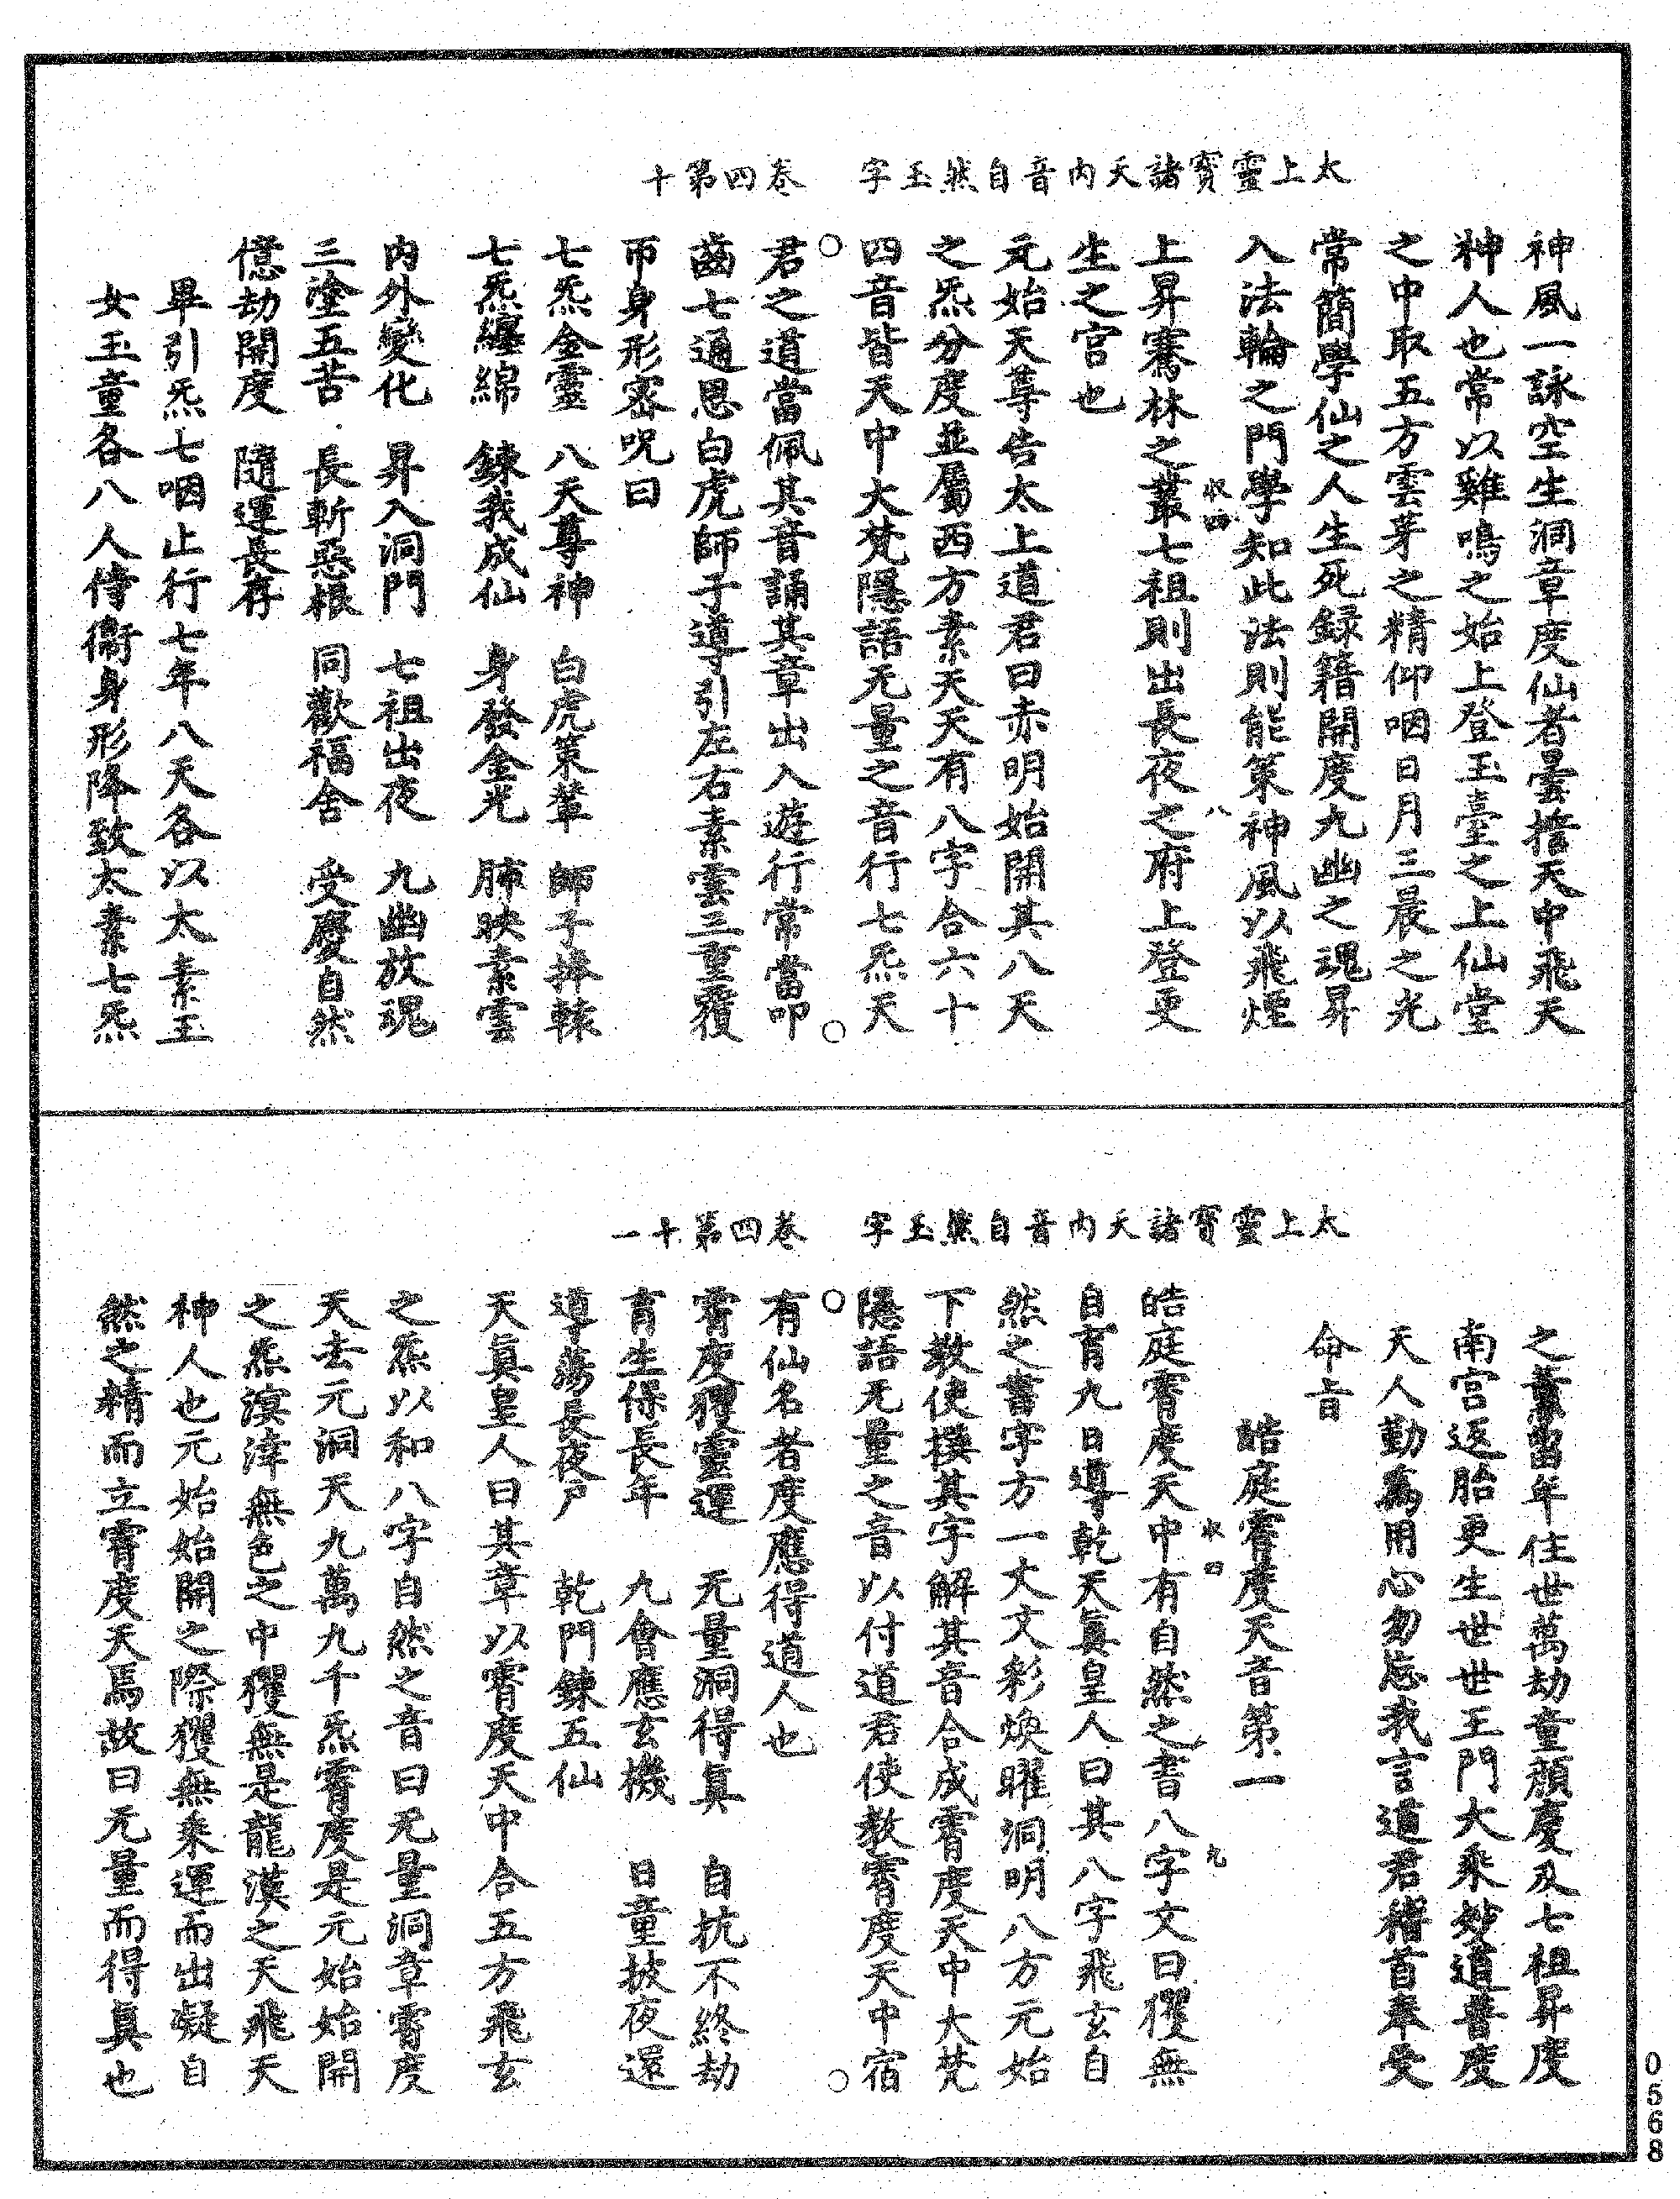 太上靈寶諸天內音自然玉字　卷四第十
神風一詠空生洞章度仙者曇𢭏天中飛天
神人也常以雞鳴之始上登玉臺之上仙堂
之中取五方雲芽之精仰咽日月三晨之光
常簡學仙之人生死録籍開度九幽之魂昇
入法輪之門學知此法則能策神風以飛煙
收四　八
上昇騫林之叢七祖則出長夜之府上登更
生之宫也
元始天尊告太上道君曰赤明始開其八天
之炁分度並屬西方素天天有八字合六十
四音皆天中大梵隱語无量之音行七炁天
君之道當佩其音誦其章出入遊行常當叩
齒七通思白虎師子導引左右素雲三重覆
帀身形密呪曰
七炁金靈　八天尊神　白虎策輦　師子捧轅
七炁纏綿　錬我成仙　身發金光　肺映素雲
內外變化　昇入洞門　七祖出夜　九幽放魂
三塗五苦　長斬惡根　同歡福舍　受慶自然
億劫開度　隨運長存
畢引炁七咽止行七年八天各以太素玉
女玉童各八人侍衞身形降致太素七炁
太上靈寶諸天內音自然玉字　卷四第十一
之輦當年住世萬劫童顔慶及七祖昇度
南宫返胎更生世世王門大乘妙道普度
天人勤爲用心勿忘我言道君稽首奉受
命旨
皓庭霄度天音第一
收四　九
皓庭霄度天中有自然之書八字文曰玃無
自育九日導乾天真皇人曰其八字飛玄自
然之書字方一丈文彩煥曜洞明八方元始
下教使撰其字解其音合成霄度天中大梵
隱語无量之音以付道君使教霄度天中宿
有仙名者度應得道人也
霄度玃靈運　无量洞得真　自抗不終劫
育生保長年　九會應玄機　日童披夜還
導蕩長夜戸　乾門錬五仙
天真皇人曰其章以霄度天中合五方飛玄
之炁以和八字自然之音曰无量洞章霄度
天去元洞天九萬九千炁霄度是元始始開
之炁溟涬無色之中玃無是龍漢之天飛天
神人也元始始開之際玃無乘運而出凝自
然之精而立霄度天焉故曰无量而得真也
0568